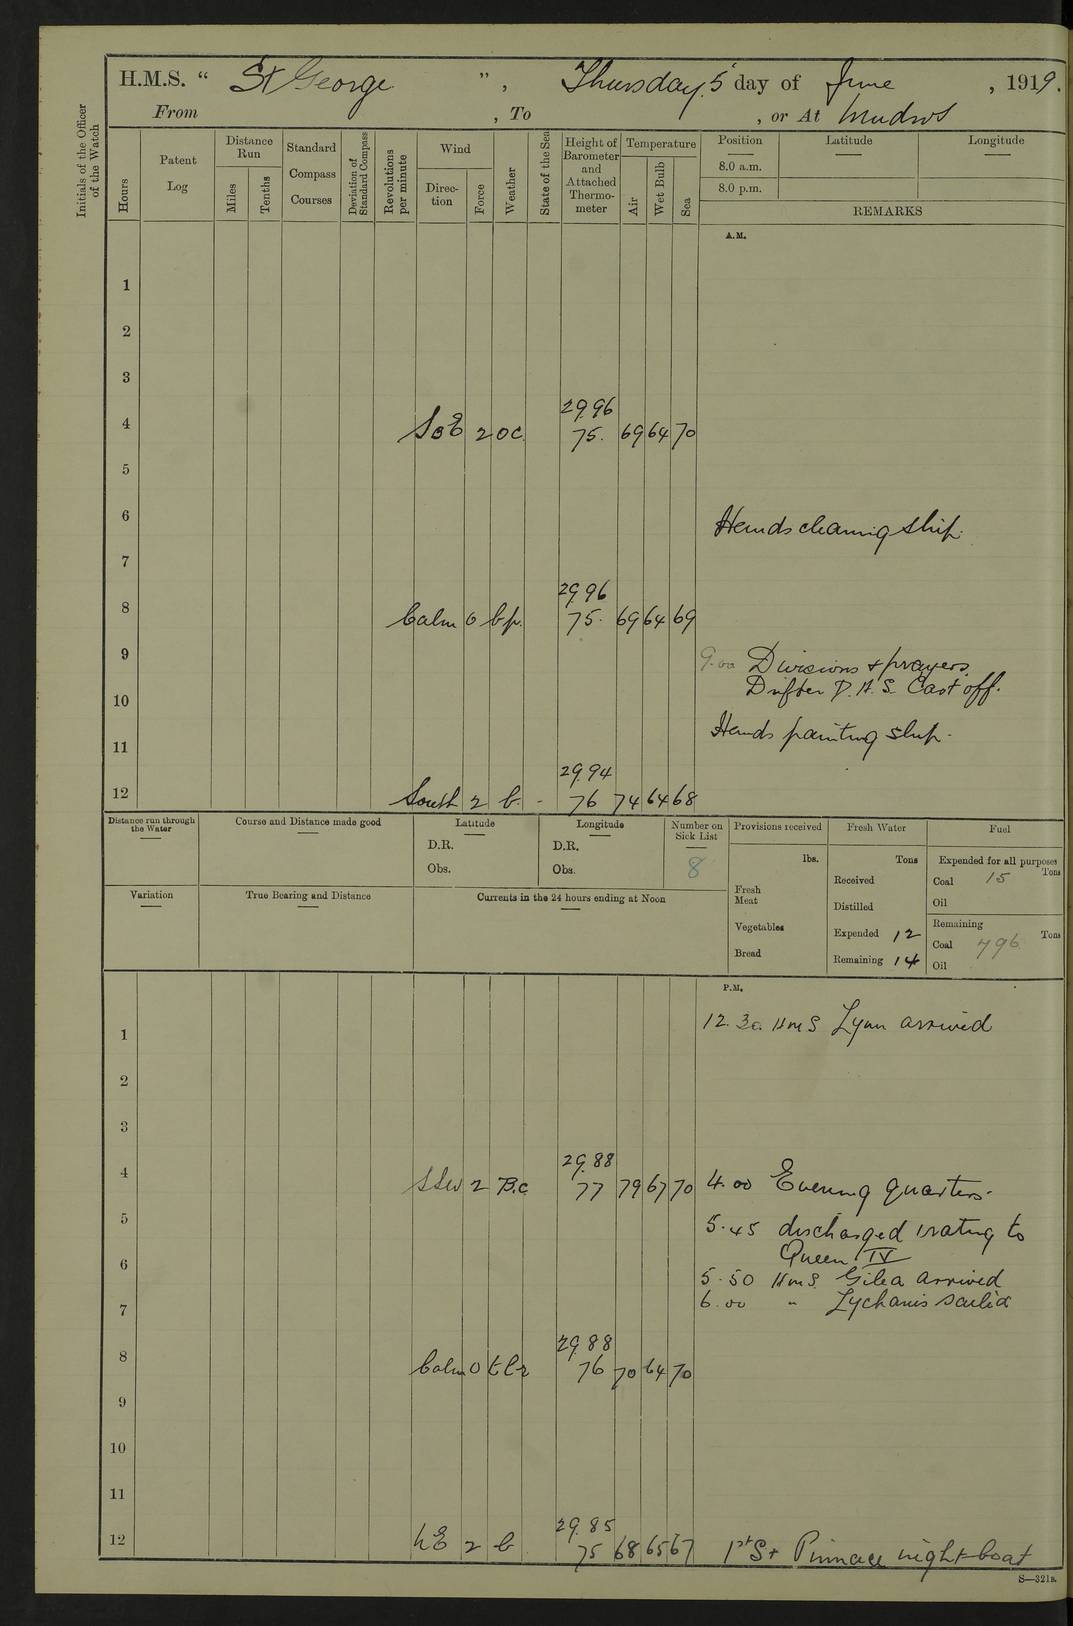 H.M.S. “ St George ”, Thursday 5 day of June, 1919.
From , To , or At Mudros
Initials of the Officer of the Watch
Hours
Patent Log
Distance Run
Miles
Tenths
Standard Compass Courses
Deviation of Standard Compass
Revolutions per minute
Wind
Direction
Force
Weather
State of the Sea
Height of Barometer and Attached Thermometer
Temperature
Air
Wet Bulb
Sea
Position Latitude Longitude
8.0 a.m.
8.0 p.m.
REMARKS
A.M.
1
2
3
29.96
4 2 oc 75. 69 64 70
5
6 Hands cleaning ship.
7
29.96
8 Calm 0 bp. 75. 69 64 69
9 9.00 Divisions & prayers.
Drifter D.A.S. Cast off.
10
11 Hands painting ship.
29.94
12 South 2 b. - 76 74 64 68
Distance run through the Water
Course and Distance made good
Latitude
D.R.
Obs.
Longitude
D.R.
Obs.
Number on Sick List
8
Provisions received
lbs.
Fresh Meat
Vegetables
Bread
Fresh Water
Tons
Received
Distilled
Expended 12
Remaining 14
Fuel
Expended for all purposes
Tons
Coal 15
Oil
Remaining
Tons
Coal 796
Oil
Variation
True Bearing and Distance
Currents in the 24 hours ending at Noon
P.M.
12.30. HMS Lynn arrived
1
2
3
29.88
4 SSW 2 B.c 77 79 67 70 4.00 Evening quarters.
5 5.45 discharged 1 rating to
Queen IV
6 5.50 HMS. Gilia arrived
7 6.00 " Lychnis sailed
29.88
8 Calm 0 76 70 64 70
9
10
11
29.85
12 NE 2 b 75 68 65 67 1st St Pinnace night boat
S—321a.